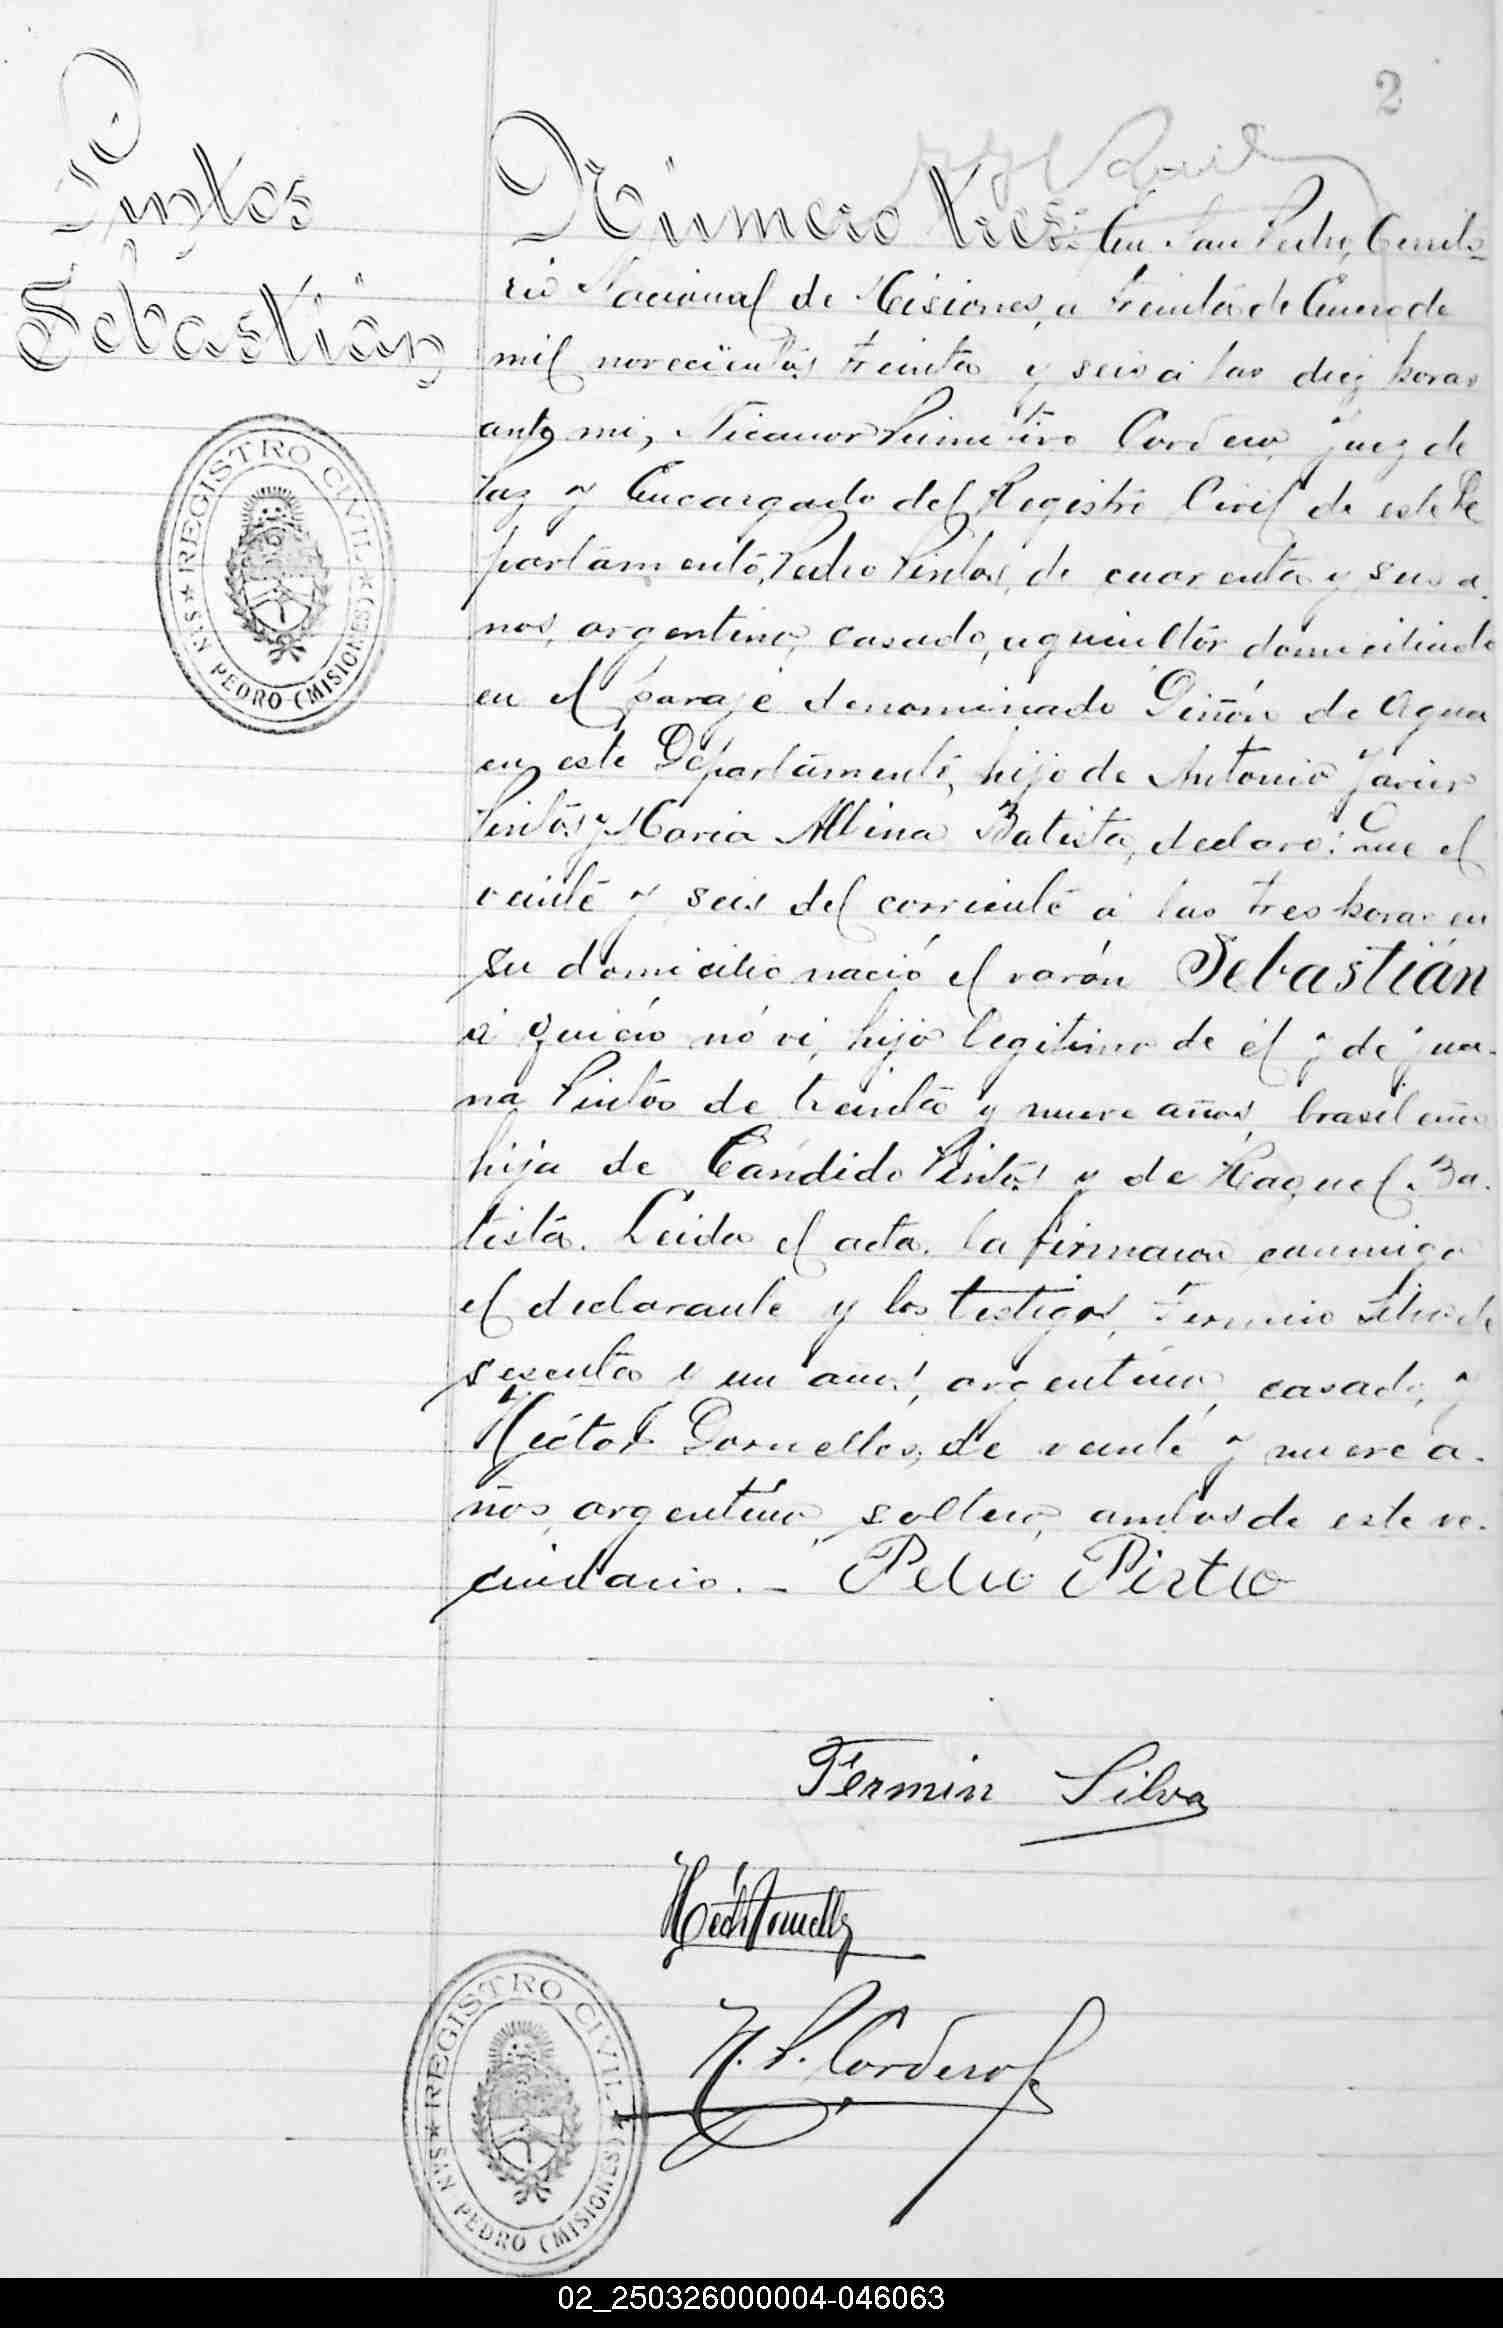 2
Pintos
Sebastián
Número tres: En San Pedro, Territo-
rio Nacional de Misiones, a treinta de Enero de
mil novecientos treinta y seis a las diez horas
ante mi, Nicanor Primitivo Cordero, Juez de
Paz y Encargado del Registro Civil de este De
partamento, Pedro Pintos, de cuarenta y seis a-
nos, argentino, casado, agricultor domiciliado
en el paraje denominado Piñón de Agua
en este Departamento, hijo de Antonio Javier
Pintos y Maria Albina Batista, declaro: Que el
veinte y seis del corriente a las tres horas en
su domicilio nació el varón Sebastián
a quien nó vi, hijo legitimo de él y de Jua-
na Pintos de treinta y nueve años, brasileña
hija de Cándido Pintos y de Raquel Ba-
tista. Leida el acta, la firmaron conmigo
el declarante y los testigos, Fermin Silva de
sesenta y un años, argentino, casado, y
Héctor Dornelles, de veinte y nueve a-
ños, argentino, soltero, ambos de este ve-
cindario. -
Fermin Silva
N. P. Cordero
REGISTRO CIVIL
SAN PEDRO (MISIONES)
REGISTRO CIVIL
SAN PEDRO (MISIONES)
02_250326000004-046063